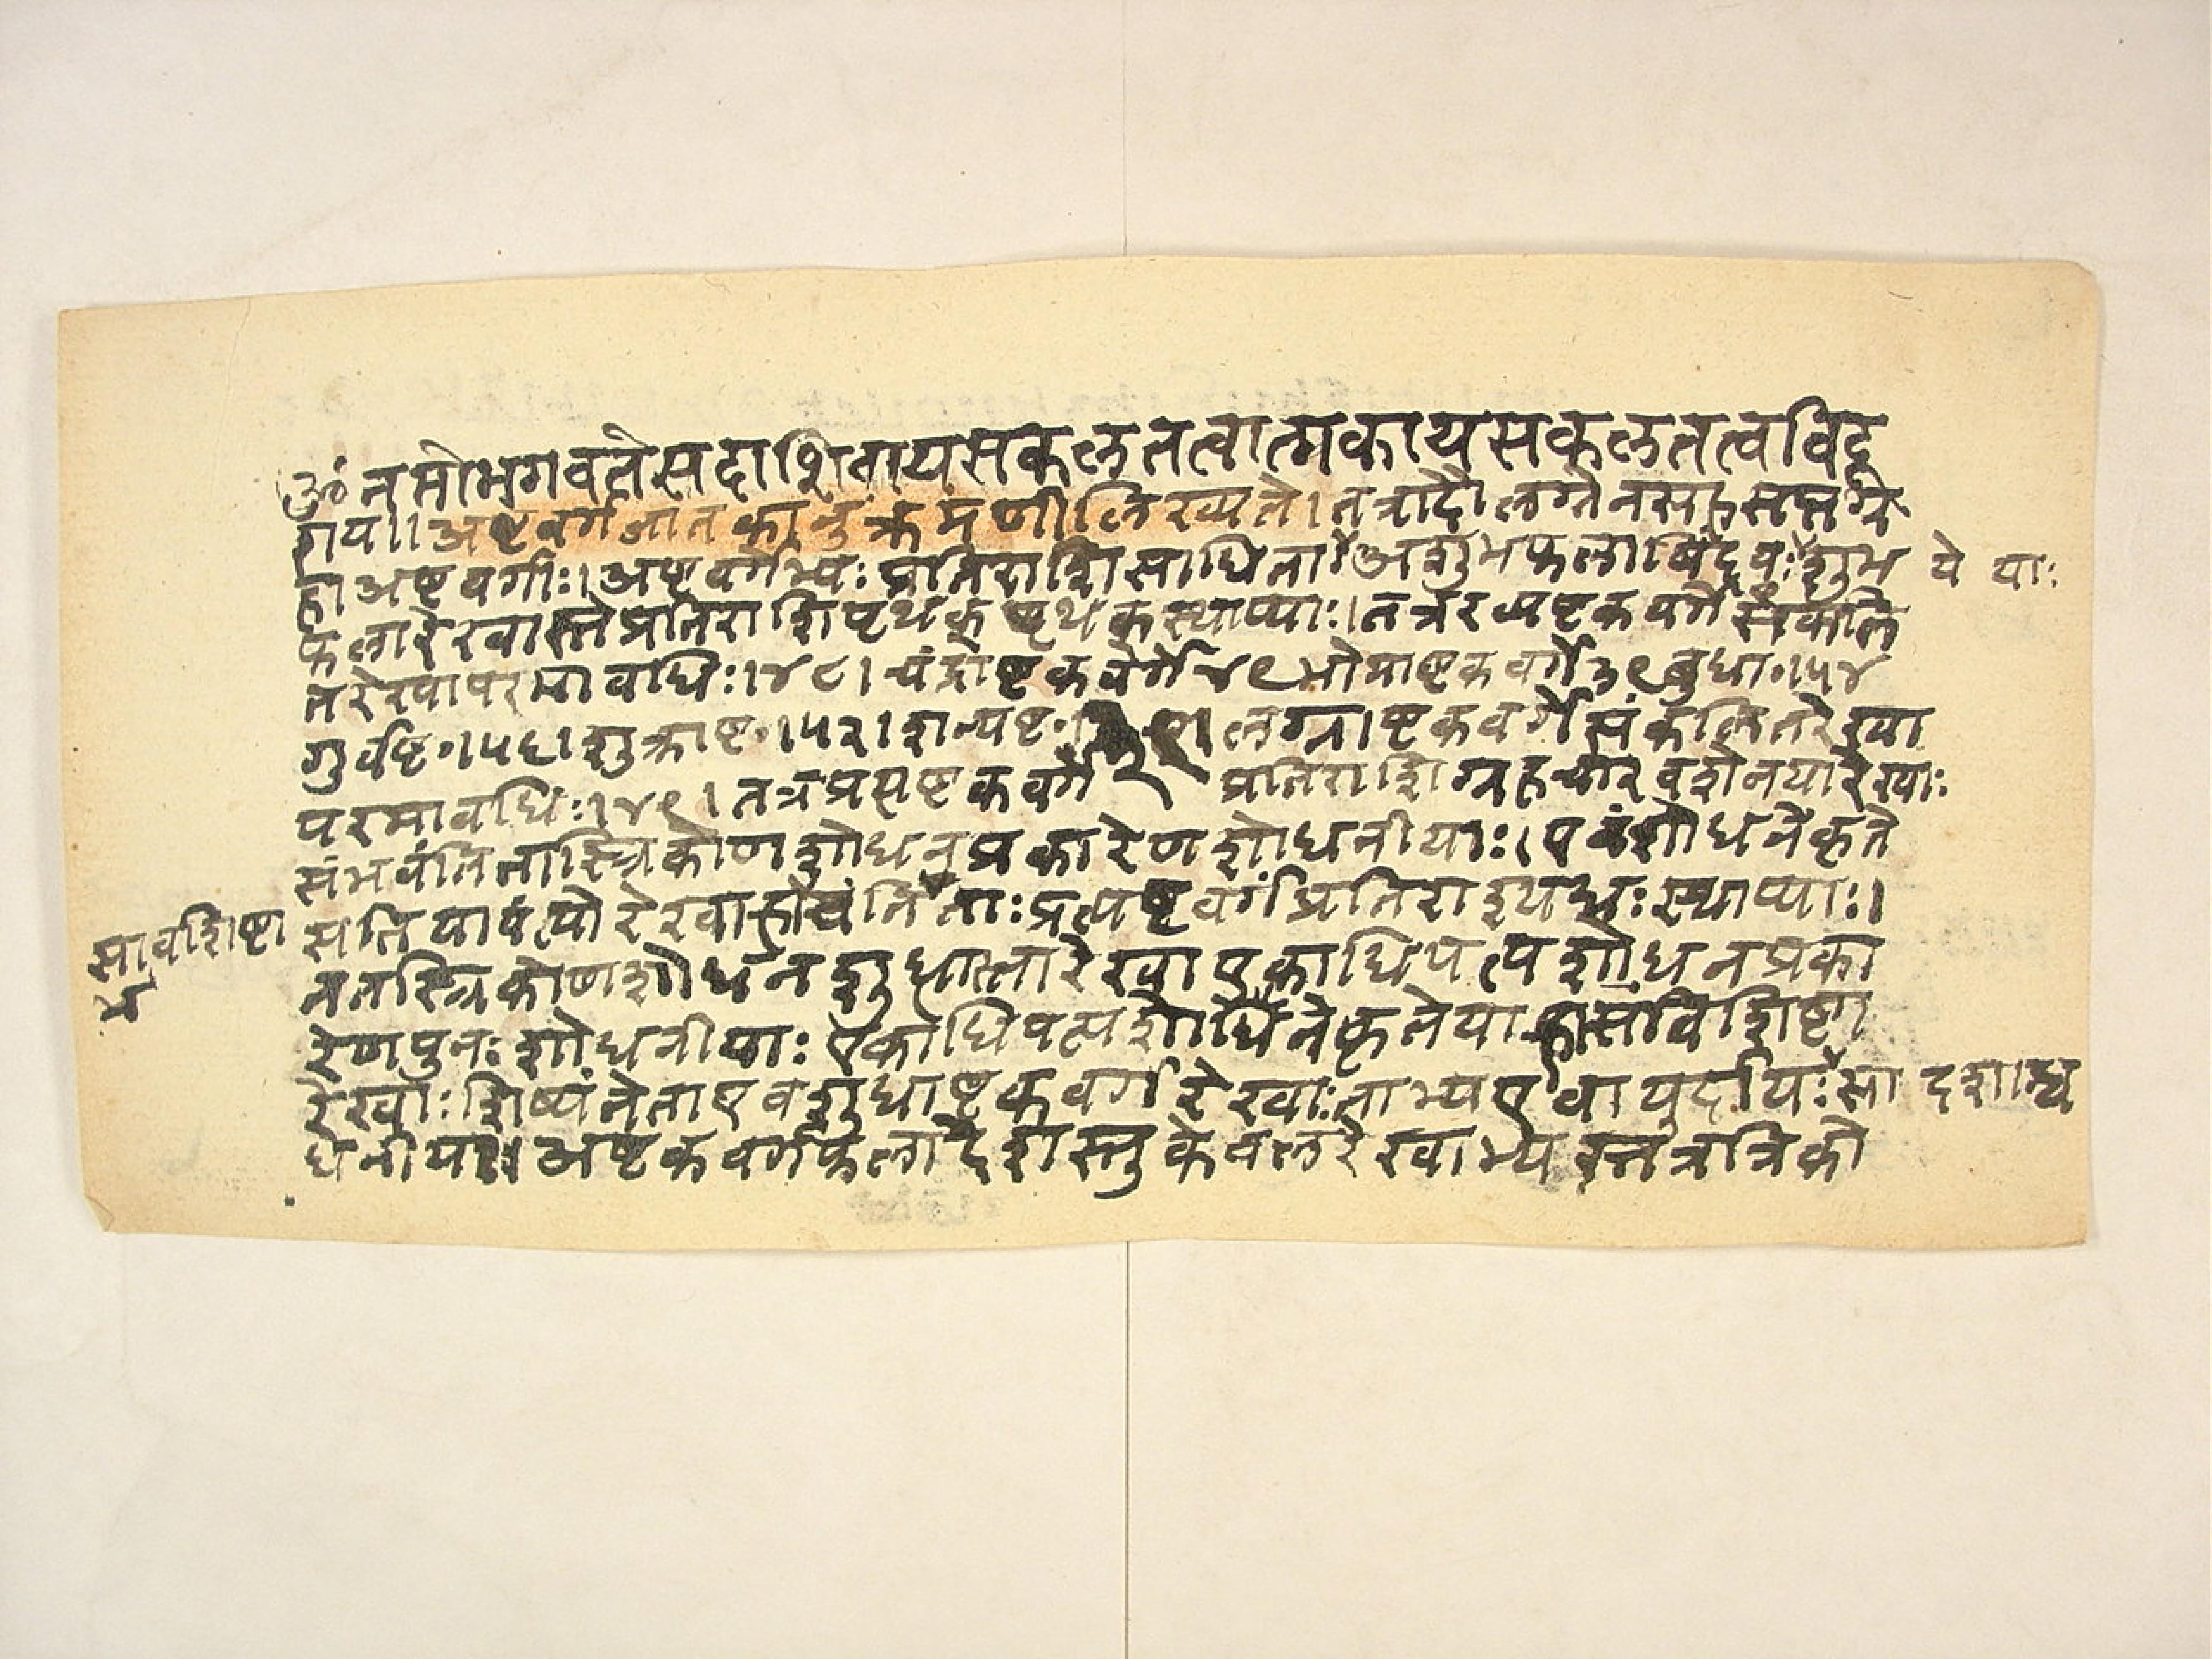 ॐ नमोभगवतेसदाशिवायसकलतत्वात्मकायसकलतत्वविदू
राय।।अष्टवर्गजातकानुंक्रमंणीलिख्यते।तत्रादौलग्नेनसहसप्तग्र
हाअष्टवर्गाः।अष्टवर्गेभ्यःप्रतिराशिसाधिता अशुभफलाबिंदवःशुभ
ये याः
फलारेखास्तेप्रतिराशिपृथक्पृथक्स्थाप्याः।तत्ररव्यष्टकवर्गेसंकलि
तरेखापरमावधिः।४८।चंद्राष्टकवर्गे४९भौमाष्टकवर्गे३९बुधा०।५४
गुर्वष्ट०।५६।शुक्राष्ट०।५२।शन्यष्ट० ३९ लग्नाष्टकवर्गेसंकलितरेखा
परमावधिः।४९।तत्रप्रत्यष्टकवर्गे प्रतिराशिग्रहचारवशेनयारेखाः
संभवंतितास्त्रिकोणशोधनप्रकारेणशोधनीयाः।एवंशोधनेकृते
सावशिष्टा
सतिया रेखा ताःप्रत्यष्टवर्गंप्रतिराश्यधःस्थाप्याः।
ततस्त्रिकोणशोधनशुधास्तारेखाएकाधिपत्यशोधनप्रका
रेणपुनःशोधनीयाः एकाधिपत्यशोधनेकृतेया वशिष्टा
रेखाःशिष्यंतेताएवशुधाष्टकवर्गरेखाःताभ्यएवायुर्दायःसा दशाश्च
धनीयाः।अष्टकवर्गफलादेशस्तुकेवलरेखाभ्यस्तत्रत्रिको